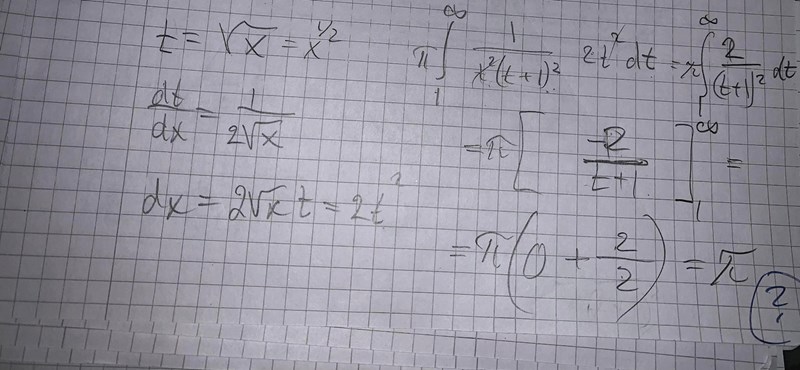 t = √x = x^1/2
dt/dx = 1/(2√x)
dx = 2√x t = 2t²
π ∫₁^∞ 1/(t²(t+1)²) 2t² dt = π ∫₁^∞ 2/(t+1)² dt
= π [ -2/(t+1) ]₁^∞ =
= π (0 + 2/2) = π